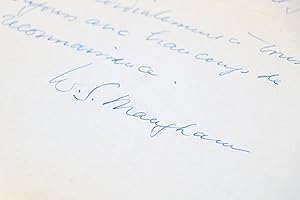 cordialement
toujours avec beaucoup de
reconnaissance.
W. S. Maugham